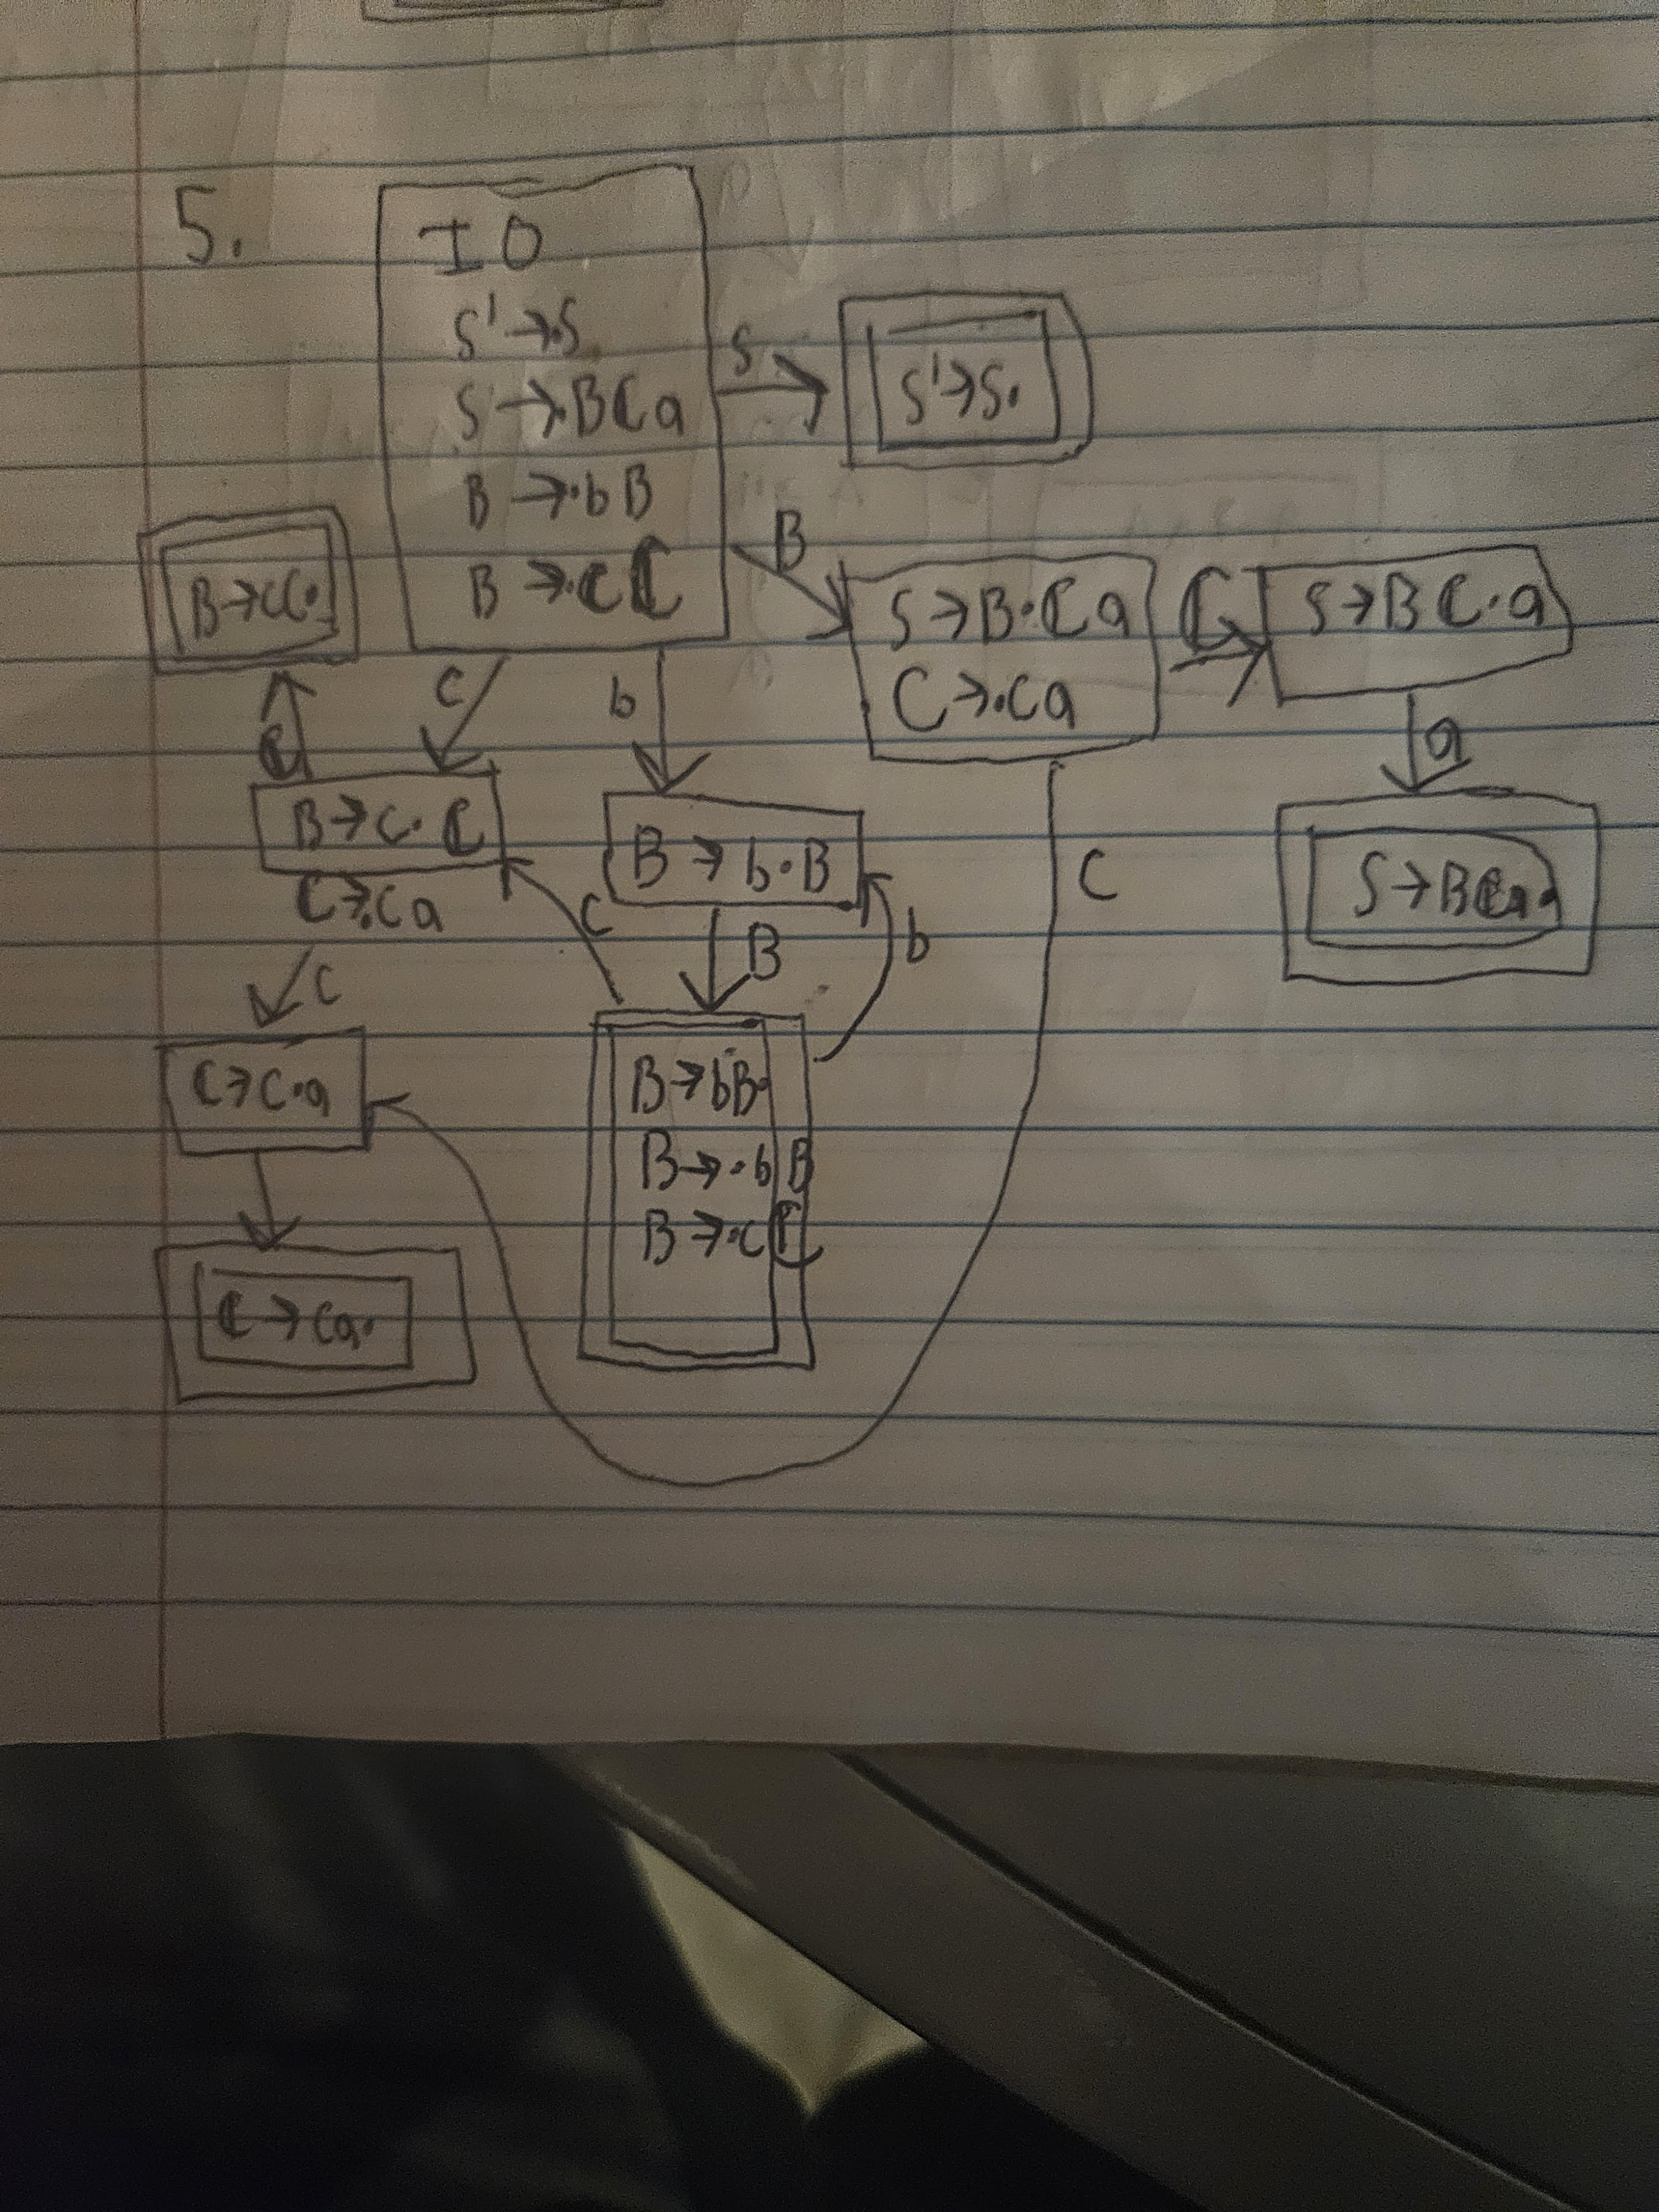 5.
I0
S' →.S
S →.BCa
B →.bB
B →.cC
S
S'→S.
B
S→B.Ca
C→.ca
C
S→BC.a
a
S→BCa.
c
b
B→cC.
C
B→c.C
C→.ca
c
B→b.B
B
b
c
c
C→c.a
B→bB.
B→.bB
B→.cC
C→ca.